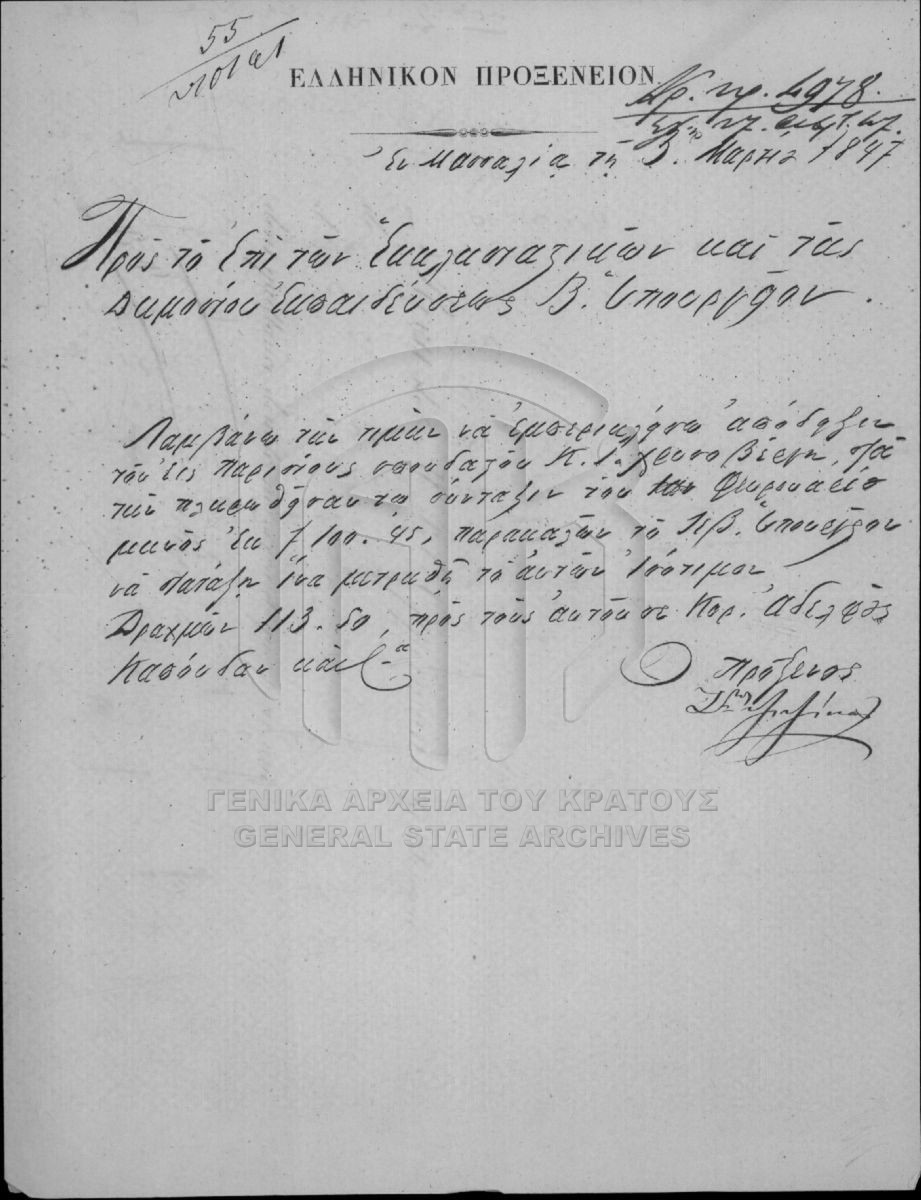 55
ΕΛΛΗΝΙΚΟΝ ΠΡΟΞΕΝΕΙΟΝ
Αρ. πρ. 4978.
Ἐν Μασσαλίᾳ τῇ 3. Μαρτίου 1847
Πρὸς τὸ ἐπὶ τῶν Ἐκκλησιαστικῶν καὶ τῆς
Δημοσίου Ἐκπαιδεύσεως Β. Ὑπουργεῖον.
Λαμβάνω τὴν τιμὴν νὰ ἐμπερικλείσω ἀπόδειξιν
τοῦ εἰς Παρισίους σπουδαστοῦ Κ. Ι. Χρυσοβέργη, διὰ
τὴν πληρωθεῖσαν τῳ σύνταξιν τοῦ Φευρουαρίου
μηνὸς ἐκ 100. 45, παρακαλῶν τὸ Σεβ. Ὑπουργεῖον
νὰ διατάξῃ ἵνα μετρηθῇ τὸ αὐτῶν ἰσότιμον
Δραχμῶν 113. 50, πρὸς τοὺς αὐτοῦσε Κυρ. Ἀδελφοὺς
καὶ Σ.α
Ὁ Πρόξενος
ΓΕΝΙΚΑ ΑΡΧΕΙΑ ΤΟΥ ΚΡΑΤΟΥΣ
GENERAL STATE ARCHIVES